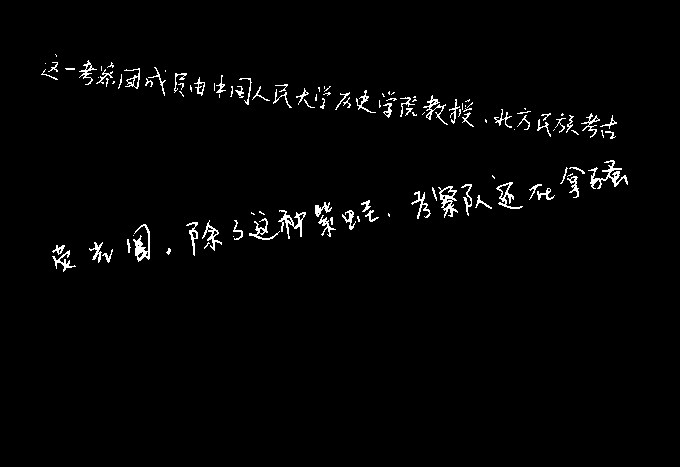 这一考察团成员由中国人民大学历史学院教授、北方民族考古
萤光圈。除了这种紫蛭，考察队还在拿骚